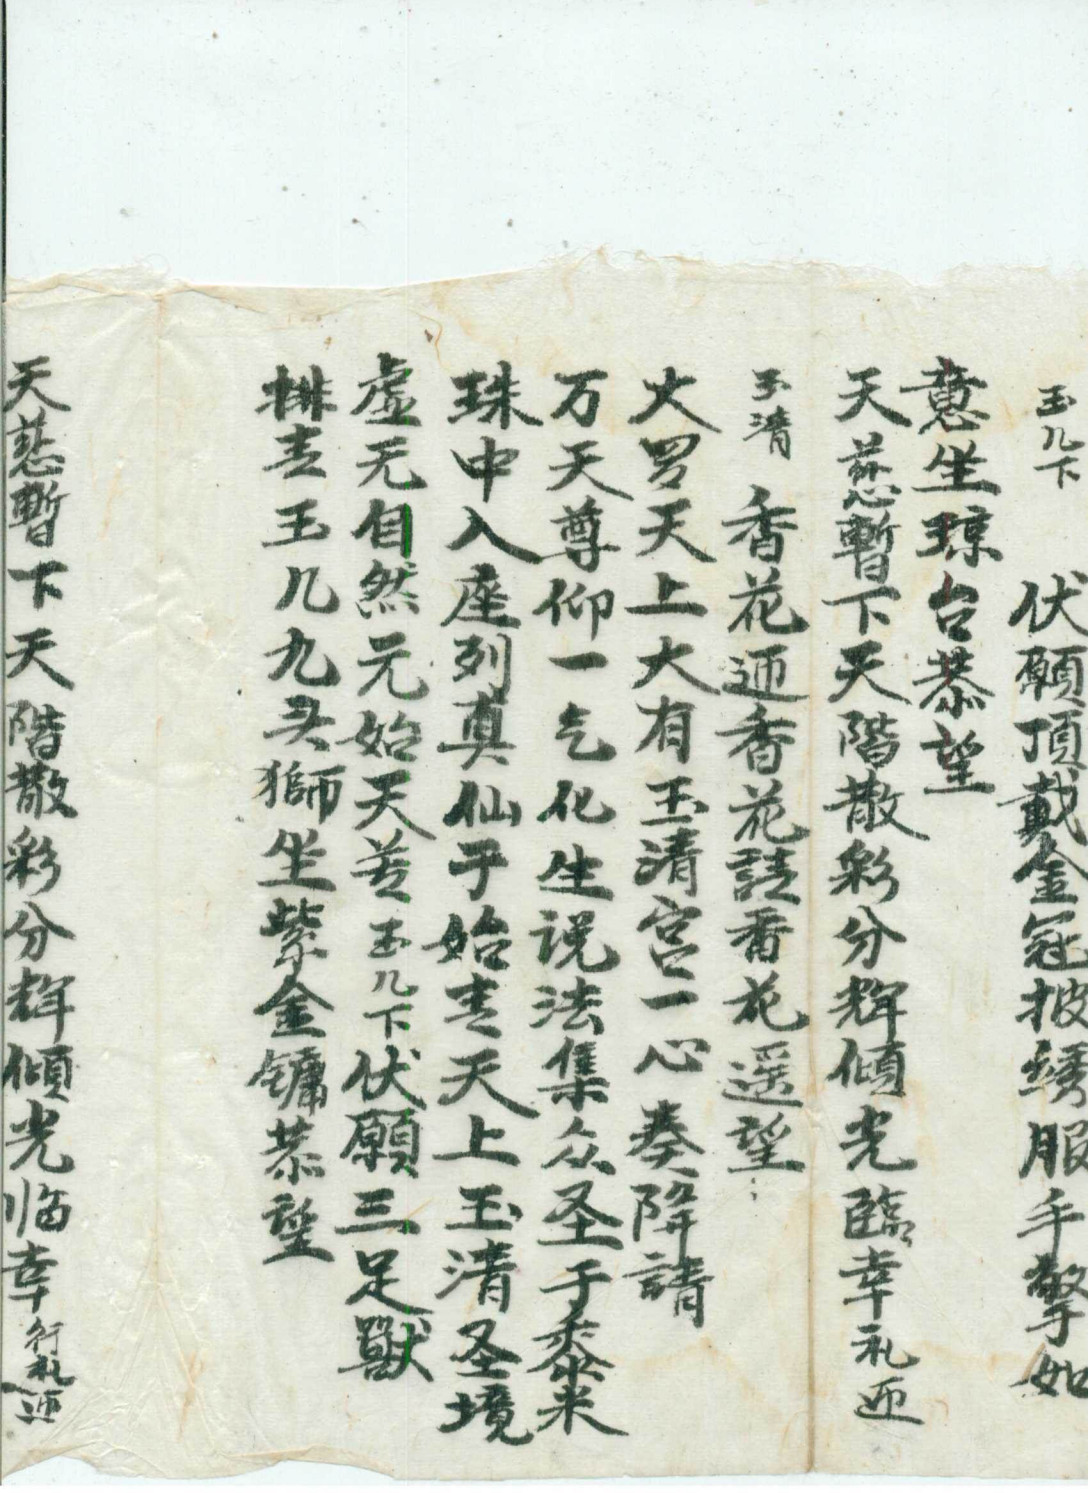 玉几下 伏願頂戴金冠披綉服手擎如
意坐琼台恭望
天慈暫下天階散彩分輝傾光臨幸礼迎
玉清 香花迎香花請香花遥望
大罗天上大有玉清宫一心奏降請
万天尊仰一乞化生说法集众圣于黍米
珠中入座列真仙于始青天上玉清圣境
虚无自然元始天尊玉几下伏願三足獸
排青玉几九头獅坐紫金鏞恭望
天慈暫下天階散彩分輝傾光临幸行礼迎